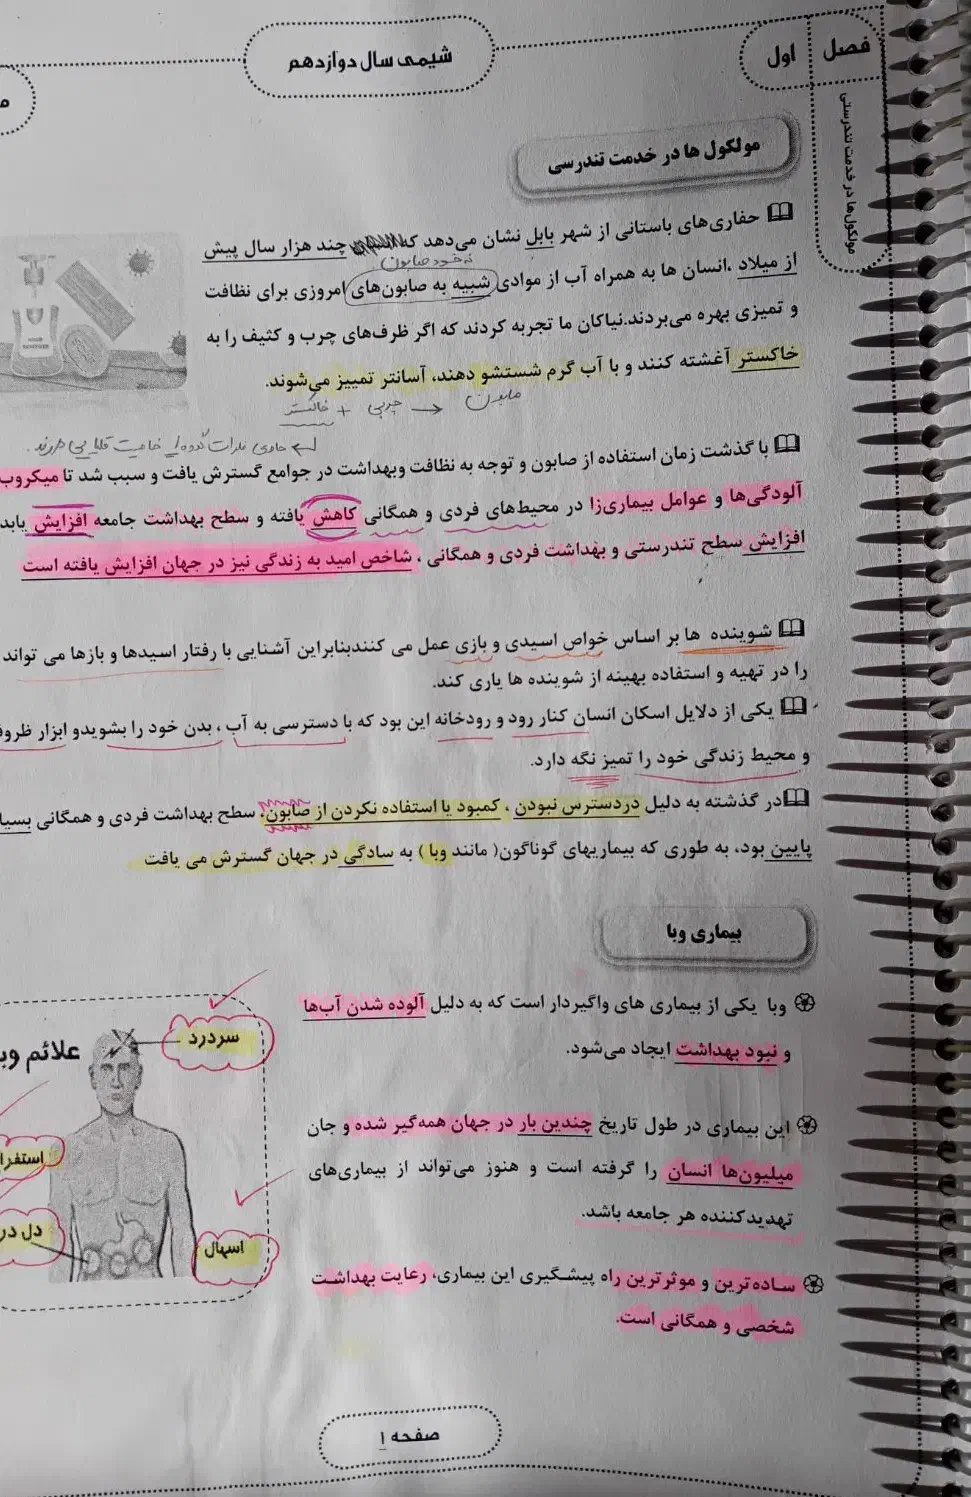 فصل اول
شیمی سال دوازدهم
مولکول‌ها در خدمت تندرستی
مولکول ها در خدمت تندرسی
حفاری‌های باستانی از شهر بابل نشان می‌دهد که چند هزار سال پیش
نه خود صابون
از میلاد ،انسان ها به همراه آب از موادی شبیه به صابون‌های امروزی برای نظافت
و تمیزی بهره می‌بردند.نیاکان ما تجربه کردند که اگر ظرف‌های چرب و کثیف را به
خاکستر آغشته کنند و با آب گرم شستشو دهند، آسانتر تمییز می‌شوند.
صابون ← چربی + خاکستر
با گذشت زمان استفاده از صابون و توجه به نظافت وبهداشت در جوامع گسترش یافت و سبب شد تا میکروب
آلودگی‌ها و عوامل بیماری‌زا در محیط‌های فردی و همگانی کاهش یافته و سطح بهداشت جامعه افزایش یابد
افزایش سطح تندرستی و بهداشت فردی و همگانی ، شاخص امید به زندگی نیز در جهان افزایش یافته است
شوینده ها بر اساس خواص اسیدی و بازی عمل می کنندبنابراین آشنایی با رفتار اسیدها و بازها می تواند
را در تهیه و استفاده بهینه از شوینده ها یاری کند.
یکی از دلایل اسکان انسان کنار رود و رودخانه این بود که با دسترسی به آب ، بدن خود را بشویدو ابزار ظروف
و محیط زندگی خود را تمیز نگه دارد.
در گذشته به دلیل دردسترس نبودن ، کمبود یا استفاده نکردن از صابون، سطح بهداشت فردی و همگانی بسیا
پایین بود، به طوری که بیماریهای گوناگون( مانند وبا ) به سادگی در جهان گسترش می یافت
بیماری وبا
وبا یکی از بیماری های واگیردار است که به دلیل آلوده شدن آب‌ها
و نبود بهداشت ایجاد می‌شود.
این بیماری در طول تاریخ چندین بار در جهان همه‌گیر شده و جان
میلیون‌ها انسان را گرفته است و هنوز می‌تواند از بیماری‌های
تهدیدکننده هر جامعه باشد.
ساده‌ترین و موثرترین راه پیشگیری این بیماری، رعایت بهداشت
شخصی و همگانی است.
علائم وب
سردرد
استفرا
دل در
اسهال
صفحه ۱